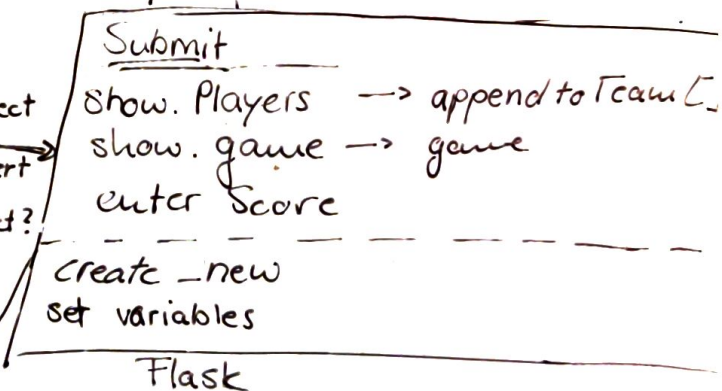 Submit
show. Players → append to Team [
show. game → game
enter Score
create_new
set variables
Flask
ect
ert
t?